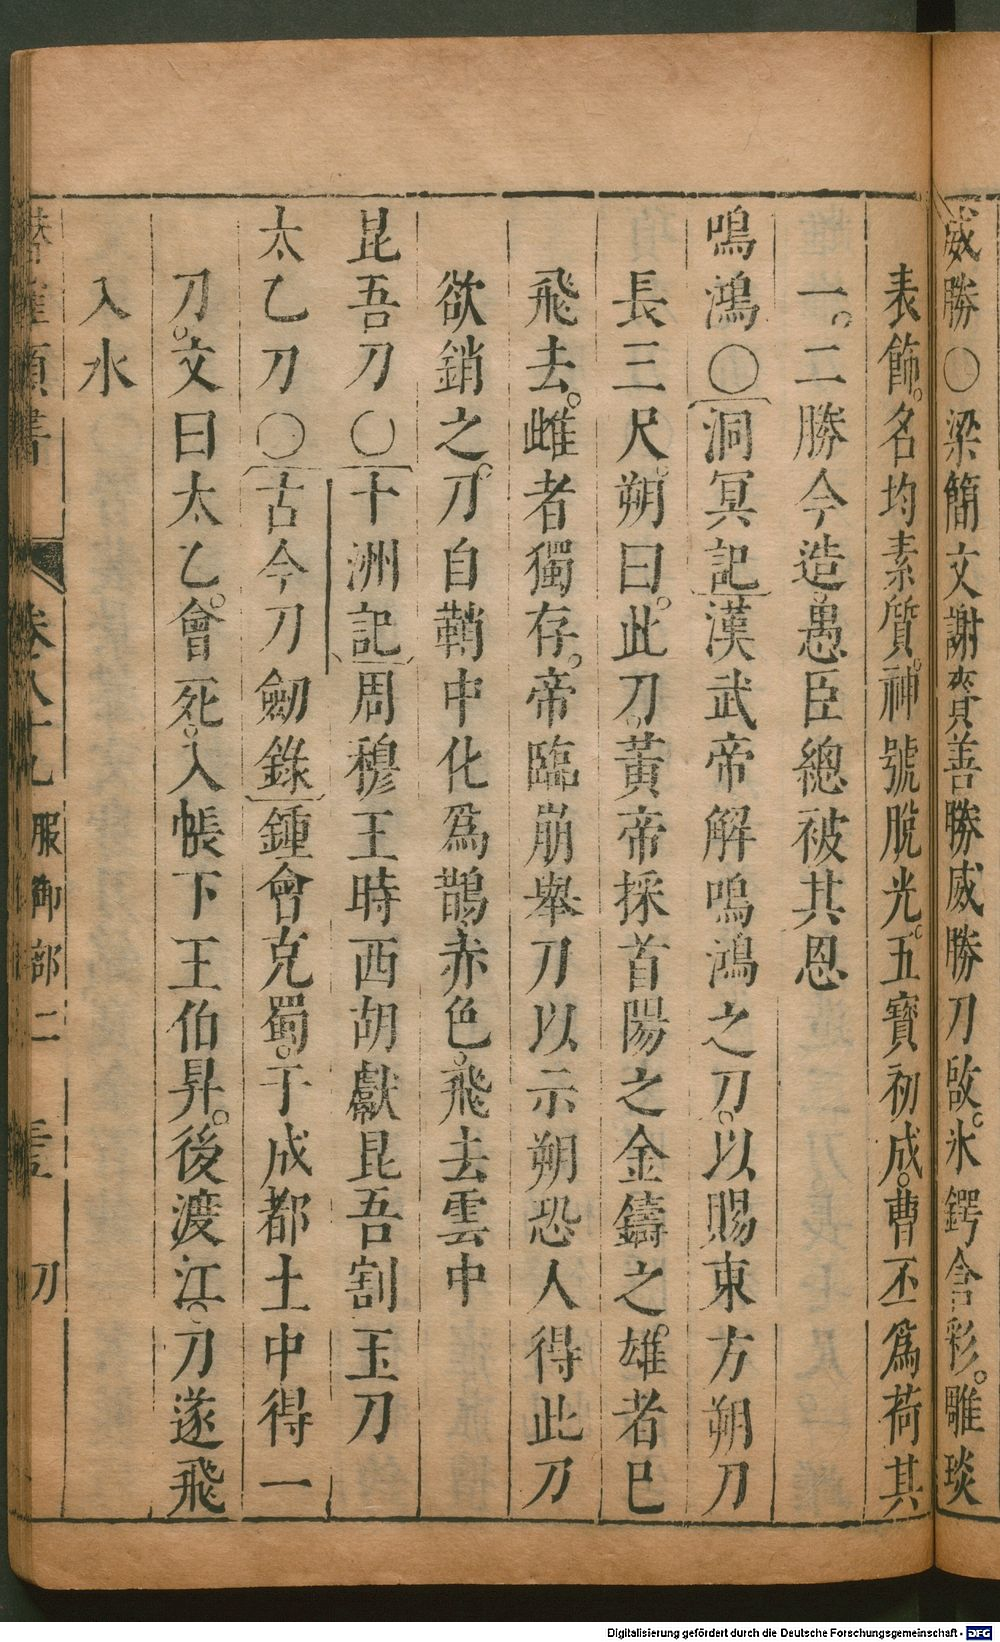 威勝〇梁簡文謝賚善勝威勝刀啟。氷鍔含彩。雕琰
表飾。名均素質。神號脫光。五寶初成。曹丕爲荷其
一。二勝今造。愚臣總被其恩
鳴鴻〇洞冥記漢武帝解鳴鴻之刀。以賜東方朔刀
長三尺。朔曰。此刀。黃帝採首陽之金鑄之。雄者已
飛去。雌者獨存。帝臨崩舉刀以示朔恐人得此刀
欲銷之。刀自鞘中化爲鵲。赤色。飛去雲中
昆吾刀〇十洲記周穆王時西胡獻昆吾割玉刀
太乙刀〇古今刀劒錄鍾會克蜀。于成都土中得一
刀。文曰太乙。會死。入帳下王伯昇。後渡江。刀遂飛
入水
類書 卷八十九 服御部二 刀
Digitalisierung gefördert durch die Deutsche Forschungsgemeinschaft - DFG